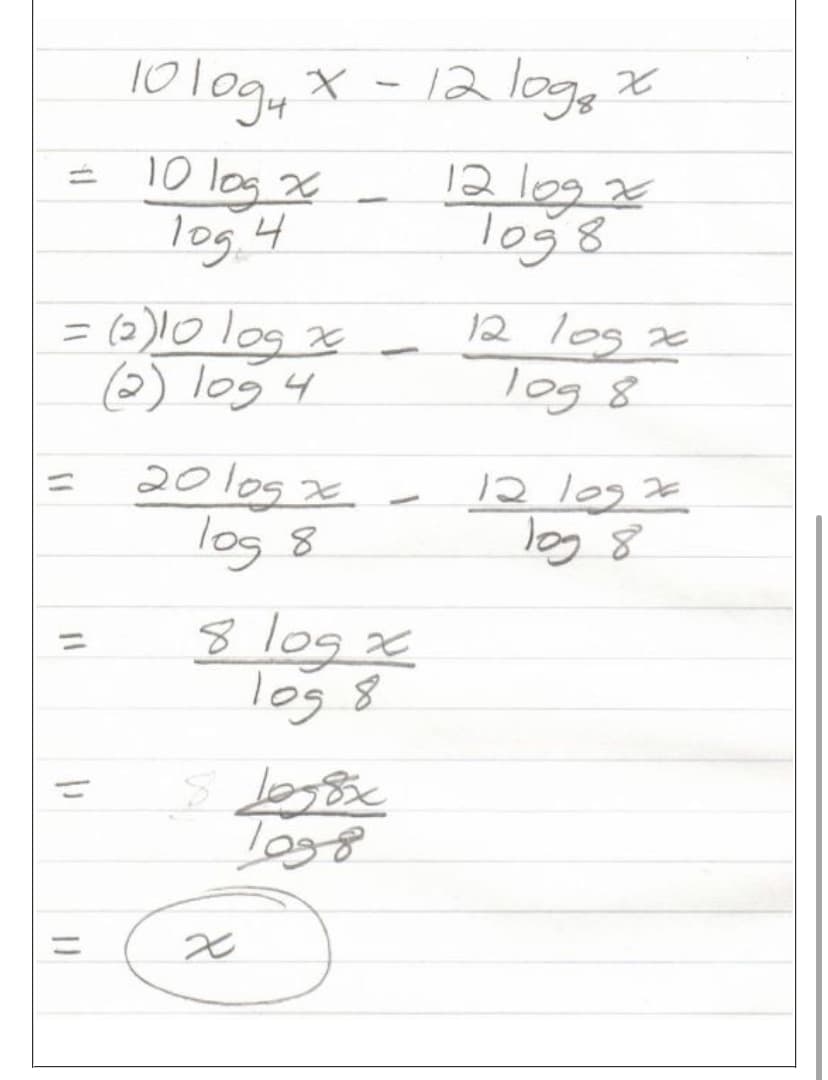 10 log₄ x - 12 log₈ x
= 10 log x / log 4 - 12 log x / log 8
= (2)10 log x / (2) log 4 - 12 log x / log 8
= 20 log x / log 8 - 12 log x / log 8
= 8 log x / log 8
= 8 log8x / log8
= x